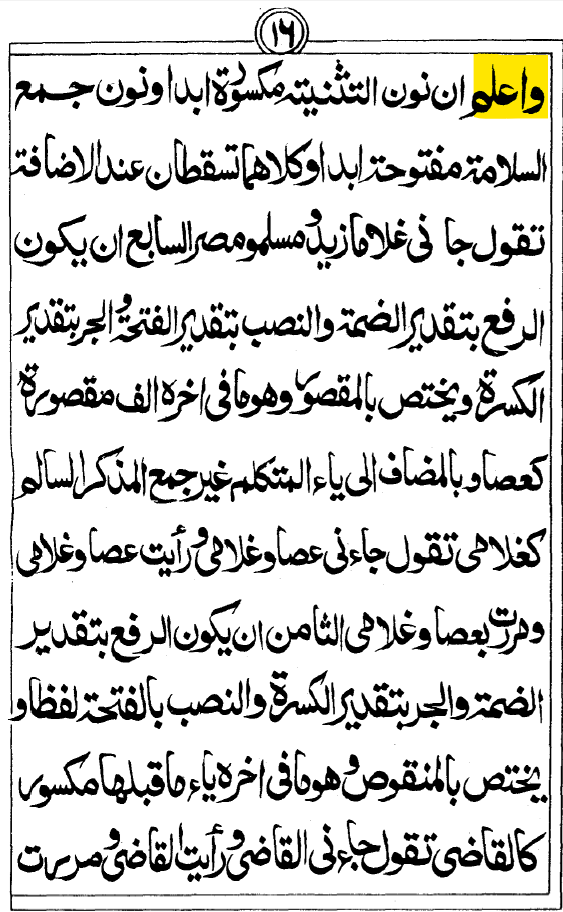 ١٦
واعلم ان نون التثنيته مكسورة ابدا ونون جمع
السلامة مفتوحة ابدا وكلاهما تسقطان عند الاضافة
تقول جاءنى غلاما زيد ومسلمو مصر السابع ان يكون
الرفع بتقدير الضمة والنصب بتقدير الفتحة والجر بتقدير
الكسرة ويختص بالمقصور وهو ما فى اخره الف مقصورة
كعصا وبالمضاف الى ياء المتكلم غير جمع المذكر السالم
كغلامى تقول جاءنى عصا وغلامى ورأيت عصا وغلامى
ومررت بعصا وغلامى الثامن ان يكون الرفع بتقدير
الضمة والجر بتقدير الكسرة والنصب بالفتحة لفظا و
يختص بالمنقوص وهو ما فى اخره ياء ما قبلها مكسور
كالقاضى تقول جاءنى القاضى ورأيت القاضى ومررت